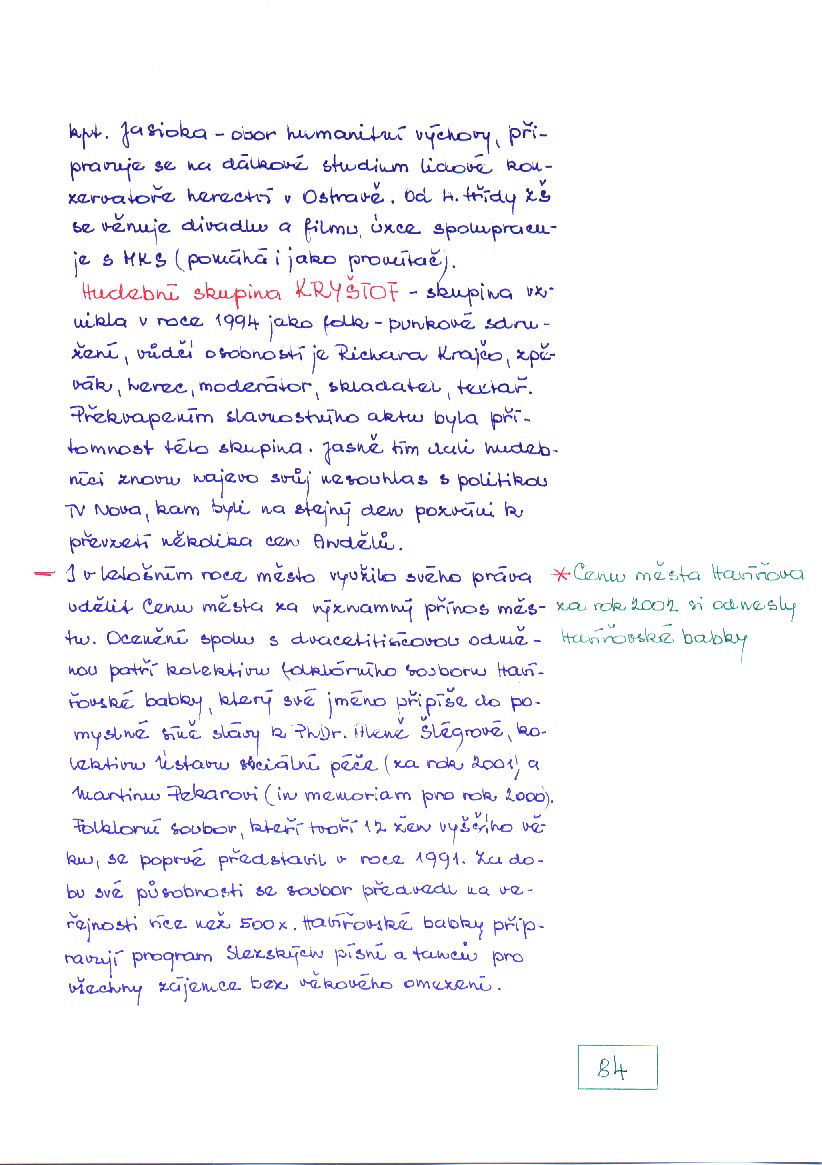 kpt. Jasioka – obor humanitní výchovy, při-
pravuje se na dálkové studium lidové kon-
zervatoře herectví v Ostravě. Od 4. třídy ZŠ
se věnuje divadlu a filmu, úzce spolupracu-
je s MKS (pomáhá i jako promítač).
Hudební skupina KRYŠTOF – skupina vz-
nikla v roce 1994 jako folk-punkové sdru-
žení, vůdčí osobností je Richard Krajčo, zpě-
vák, herec, moderátor, skladatel, textař.
Překvapením slavnostního aktu byla pří-
tomnost této skupina. Jasně tím dali hudeb-
níci znovu najevo svůj nesouhlas s politikou
TV Nova, kam byli na stejný den pozváni k
převzetí několika cen Andělů.
– I v letošním roce město využilo svého práva
udělit Cenu města za významný přínos měs-
tu. Ocenění spolu s dvacetitisícovou odmě-
nou patří kolektivu folklórního souboru Haví-
řovské babky, který své jméno připíše do po-
myslné síně slávy k PhDr. Aleně Šlégrové, ko-
lektivu Ústavu sociální péče (za rok 2001) a
Martinu Pekarovi (in memoriam pro rok 2000).
Folklorní soubor, kteří tvoří 12 žen vyššího vě-
ku, se poprvé představil v roce 1991. Za do-
bu své působnosti se soubor předvedl na ve-
řejnosti více než 500x. Havířovské babky přip-
ravují program slezských písní a tanců pro
všechny zájemce bez věkového omezení.
* Cenu města Havířova
za rok 2002 si odnesly
Havířovské babky
84